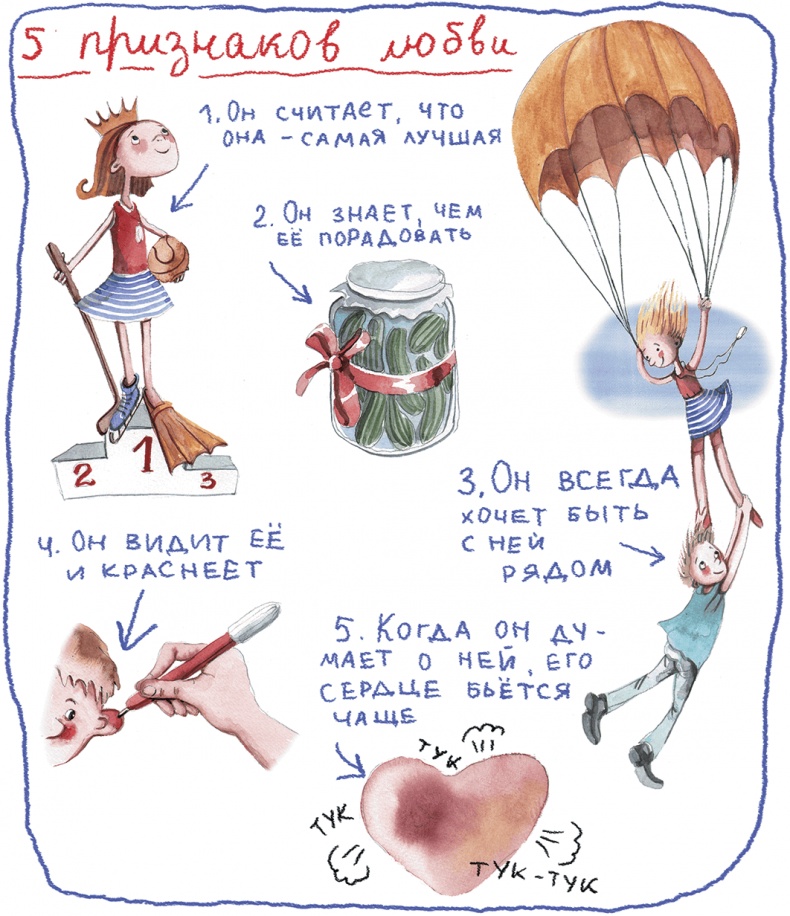 5 признаков любви
1. Он считает, что
она – самая лучшая
2. Он знает, чем
её порадовать
3. Он всегда
хочет быть
с ней
рядом
4. Он видит её
и краснеет
5. Когда он ду-
мает о ней, его
сердце бьётся
чаще
тук
тук
тук-тук
2
1
3